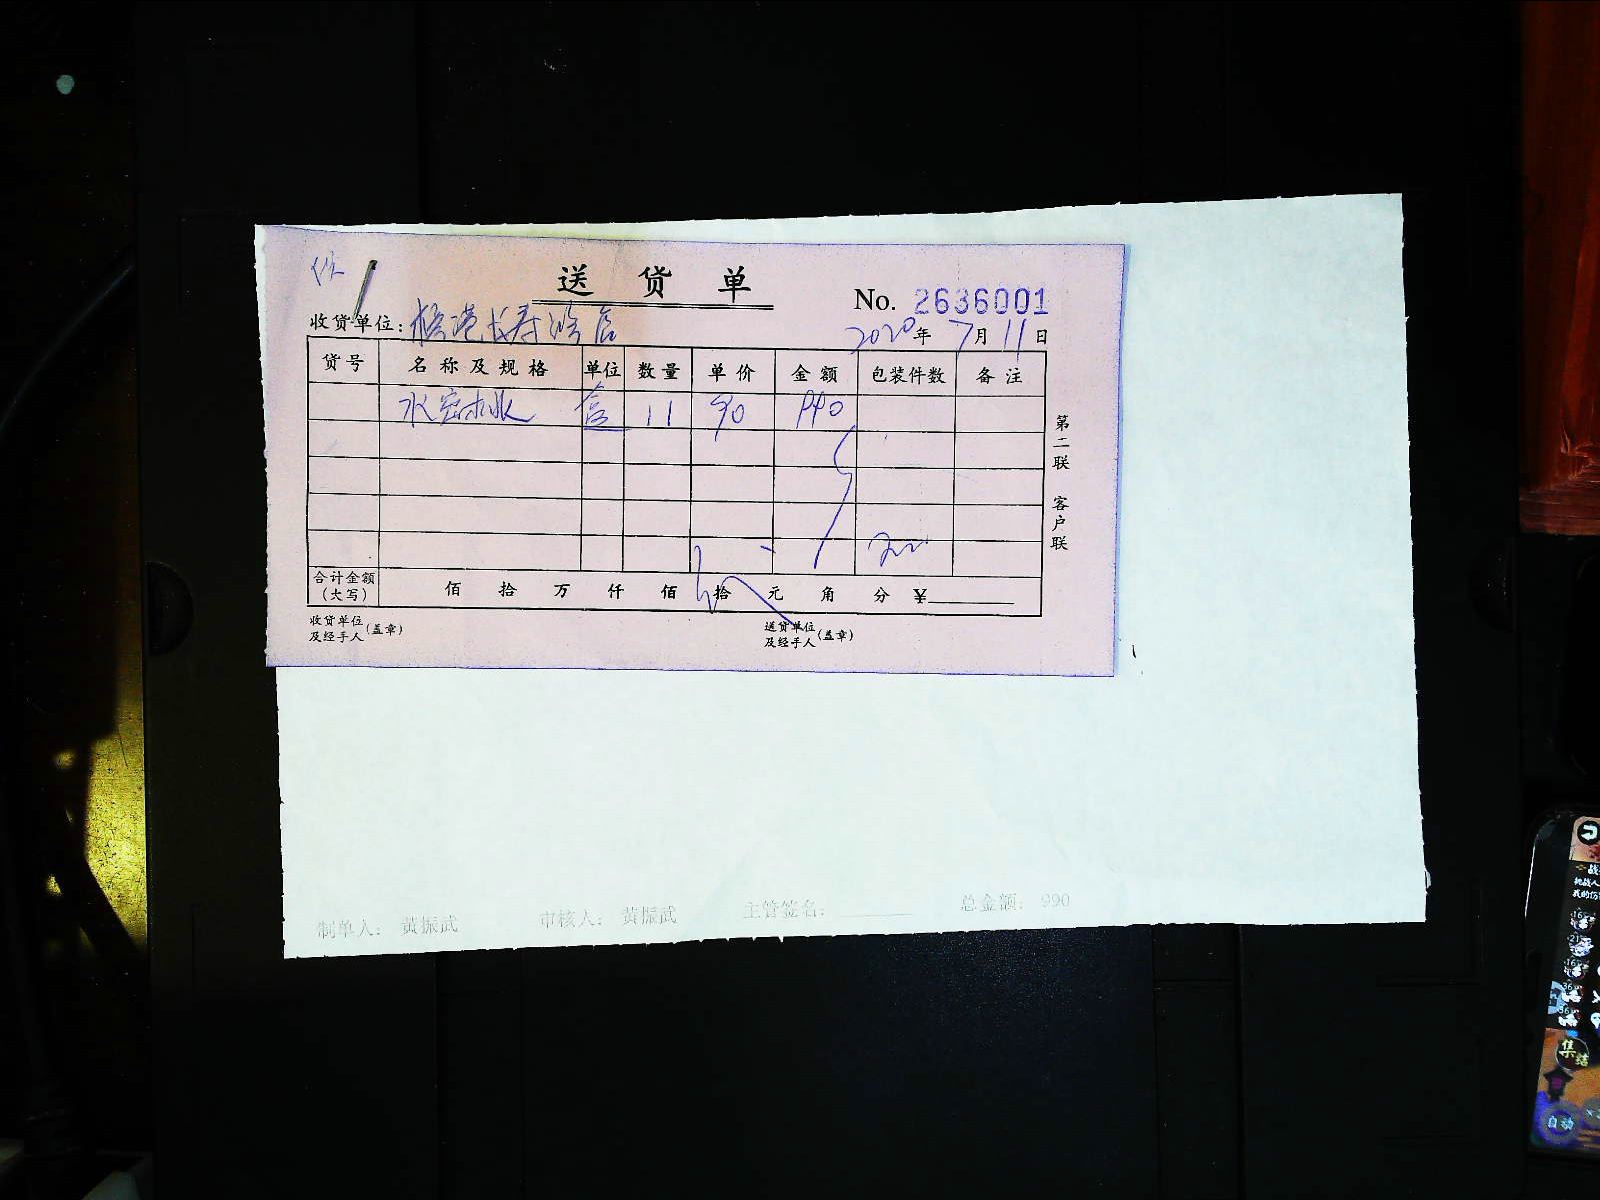 送 货 单
No. 2636001
收货单位:
2020年 7月 11日
货号 名称及规格 单位 数量 单价 金额 包装件数 备注
盒 11 90 990
第二联 客户联
合计金额(大写) 佰 拾 万 仟 佰 拾 元 角 分 ¥
收货单位及经手人(盖章) 送货单位及经手人(盖章)
制单人: 黄振武 审核人: 黄振武 主管签名: 总金额: 990
集结
自动